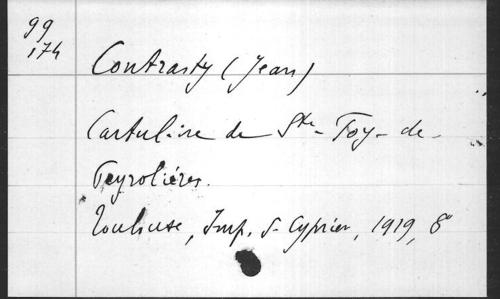 99
174
Contrasty (Jean)
Cartulaire de Ste-Foy-de-
Peyrolières.
Toulouse, Imp. S-Cyprien, 1919, 8°